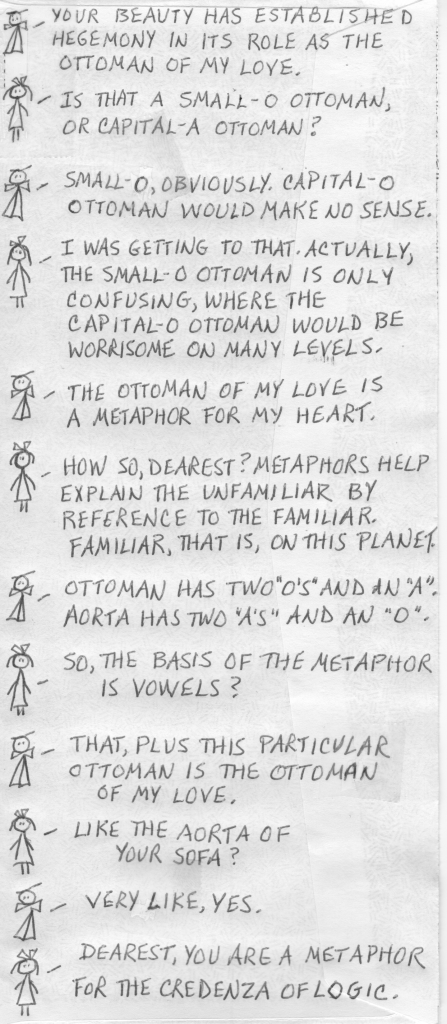 YOUR BEAUTY HAS ESTABLISHED
HEGEMONY IN ITS ROLE AS THE
OTTOMAN OF MY LOVE.
IS THAT A SMALL-O OTTOMAN,
OR CAPITAL-A OTTOMAN?
SMALL-O, OBVIOUSLY. CAPITAL-O
OTTOMAN WOULD MAKE NO SENSE.
I WAS GETTING TO THAT. ACTUALLY,
THE SMALL-O OTTOMAN IS ONLY
CONFUSING, WHERE THE
CAPITAL-O OTTOMAN WOULD BE
WORRISOME ON MANY LEVELS.
THE OTTOMAN OF MY LOVE IS
A METAPHOR FOR MY HEART.
HOW SO, DEAREST? METAPHORS HELP
EXPLAIN THE UNFAMILIAR BY
REFERENCE TO THE FAMILIAR.
FAMILIAR, THAT IS, ON THIS PLANET.
OTTOMAN HAS TWO "O'S" AND AN "A".
AORTA HAS TWO "A'S" AND AN "O".
SO, THE BASIS OF THE METAPHOR
IS VOWELS?
THAT, PLUS THIS PARTICULAR
OTTOMAN IS THE OTTOMAN
OF MY LOVE.
LIKE THE AORTA OF
YOUR SOFA?
VERY LIKE, YES.
DEAREST, YOU ARE A METAPHOR
FOR THE CREDENZA OF LOGIC.